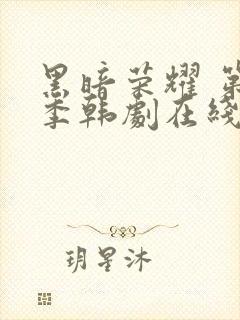 黑暗荣耀 第
季韩劇在綫
玥星沐